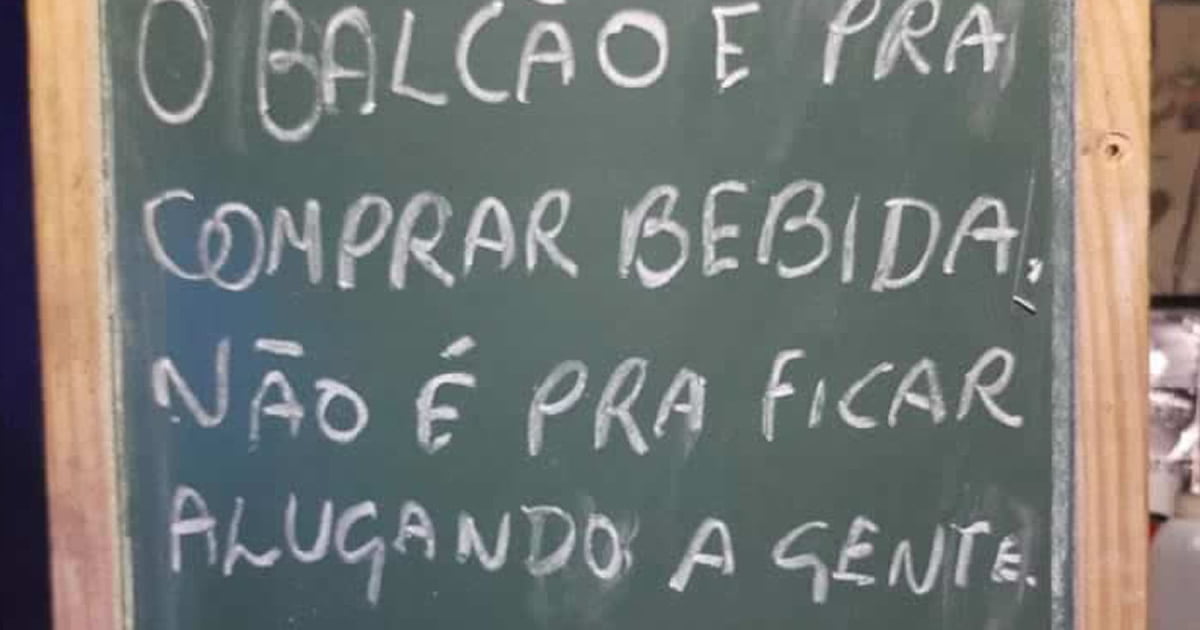 O BALCÃO E PRA
COMPRAR BEBIDA.
NÃO É PRA FICAR
ALUGANDO A GENTE.